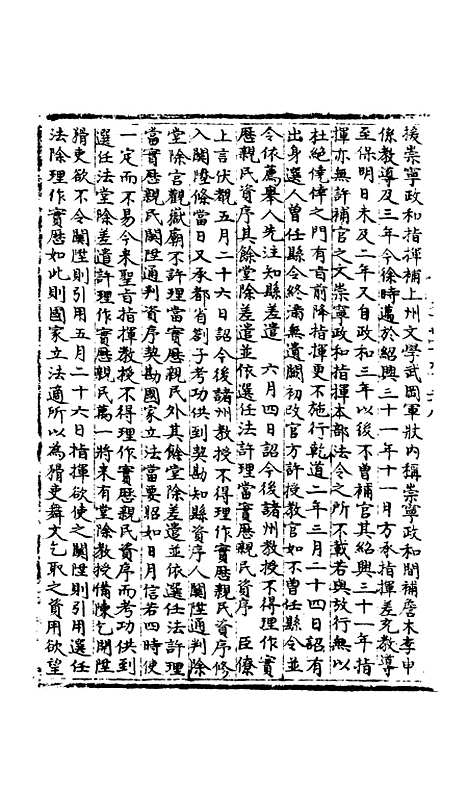 援崇寧政和指揮補上州文學武岡軍狀內稱崇寧政和間補詹木李申
係教導及三年今徐時邁於紹興三十一年十一月方承指揮差充教導
至保明日未及二年又自政和三年以後不曾補官其紹興三十一年指
揮亦無許補官之文崇寧政和指揮本部法令之所不載若與放行無以
杜絕倖倖之門有旨前降指揮更不施行乾道二年三月二十四日詔有
出身選人曾任縣令終滿無遺闕初改官方許授教官如不曾任縣令並
令依薦舉人先注知縣差遣 六月四日詔今後諸州教授不得理作實
歷親民資序其餘堂除差遣並依選任法許理當實歷親民資序 臣僚
上言伏覩五月二十六日詔令後諸州教授不得理作實歷親民資序修
入關陞條當日又承都省劄子考功供到契勘知縣資序人關陞通判除
堂除宮觀嶽廟不許理當實歷親民外其餘堂除差遣並依選任法許理
當實歷親民關陞通判資序契勘國家立法當要昭如日月信若四時使
一定而不易今來聖旨指揮教授不得理作實歷親民資序而考功供到
選任法堂除差遣許理作實歷親民萬一將來有堂除教授備陳乞關陞
猾吏欲不令關陞則引用五月二十六日指揮欲使之關陞則引用選任
法除理作實歷如此則國家立法適所以為猾吏舞文乞取之資用欲望